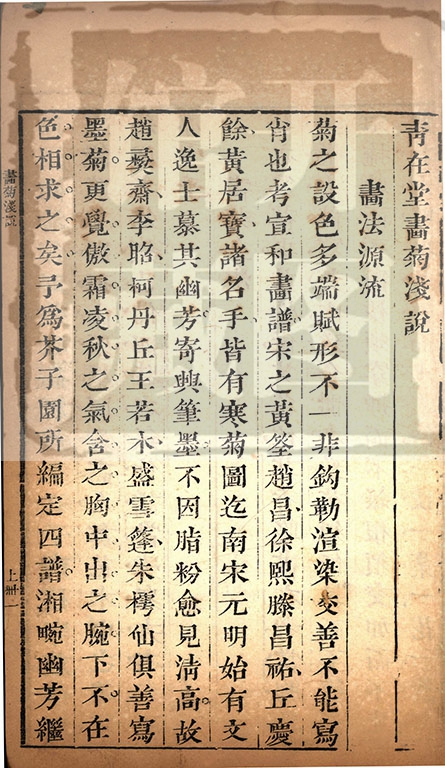 青在堂畫菊淺說
畫法源流
菊之設色多端賦形不一非鈎勒渲染交善不能寫
肖也考宣和畫譜宋之黃筌趙昌徐熙滕昌祐丘慶
餘黃居寶諸名手皆有寒菊圖迄南宋元明始有文
人逸士慕其幽芳寄興筆墨不因脂粉愈見清高故
趙彜齋李昭柯丹丘王若水盛雪篷朱樗仙俱善寫
墨菊更覺傲霜凌秋之氣含之胸中出之腕下不在
色相求之矣予為芥子園所編定四譜湘畹幽芳繼
畫菊淺說
上冊 一